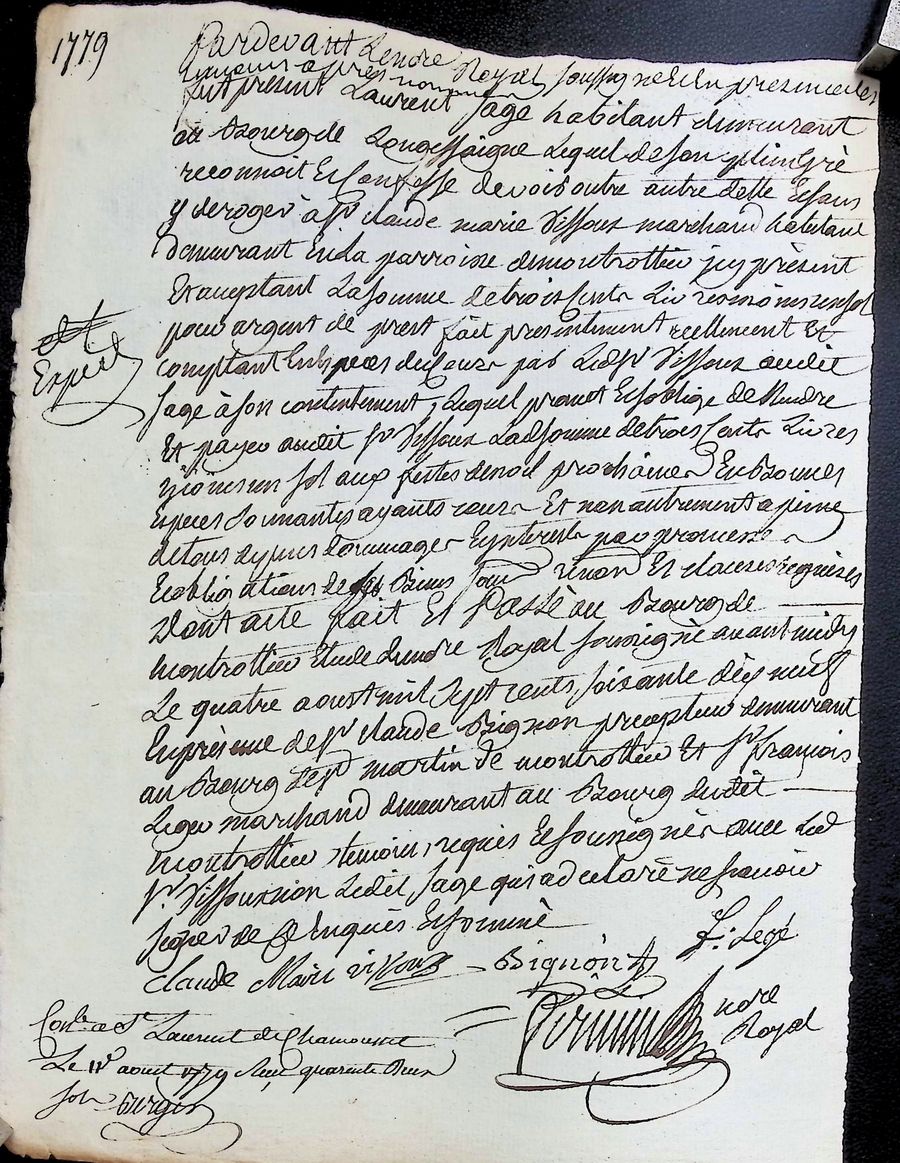 1779
Pardevant Le nore Royal soussigné Et En presence des
temoins apres nommes
fut present Laurent Sage habitant demeurant
au Bourg de Longessaigne Lequel de son plein Gré
reconnoit Et Confesse devoir outre autre dette Et sans
y deroger à sr claude marie Vissoux marchand habitant
demeurant En la parroisse de montrottier jcy présent
Et acceptant La somme de trois Cents Livres moins un sol
pour argent de prest fait presentement reellement Et
comptant En Especes de Cours par Ledt sr Vissoux audit
Sage à son contentement, Lequel promet Et soblige de Rendre
Et payer audit sr Vissoux Lad somme de trois Cents Livres
moins un sol aux festes de noel prochaines En Bonnes
Especes sonnantes ayants cours Et non autrement a peine
de tous depens dommages Eynterests par promesse
Et obligations de ses Biens soum renon Et clauses requises
Dont acte fait Et Passé au Bourg de
montrottier Etude du nore Royal soussigné avant midy
Le quatre aoust mil sept cents soixante dix neuf
En présence de sr claude Bignon precepteur demeurant
au Bourg de st martin de montrottier Et sr françois
Legé marchand demeurant au Bourg dudit
montrottier, temoins, requis Et soussignés avec Led
sr Vissoux non Ledit Sage qui a declaré ne sçavoir
signer de ce Enquis Et sommé
Expedié
claude Marie vissoux Bignon f: Legé
nore
Royal
Conle a St Laurent de Chamousset
Le 11e aoust 1779 Reçu quarente deux
sols